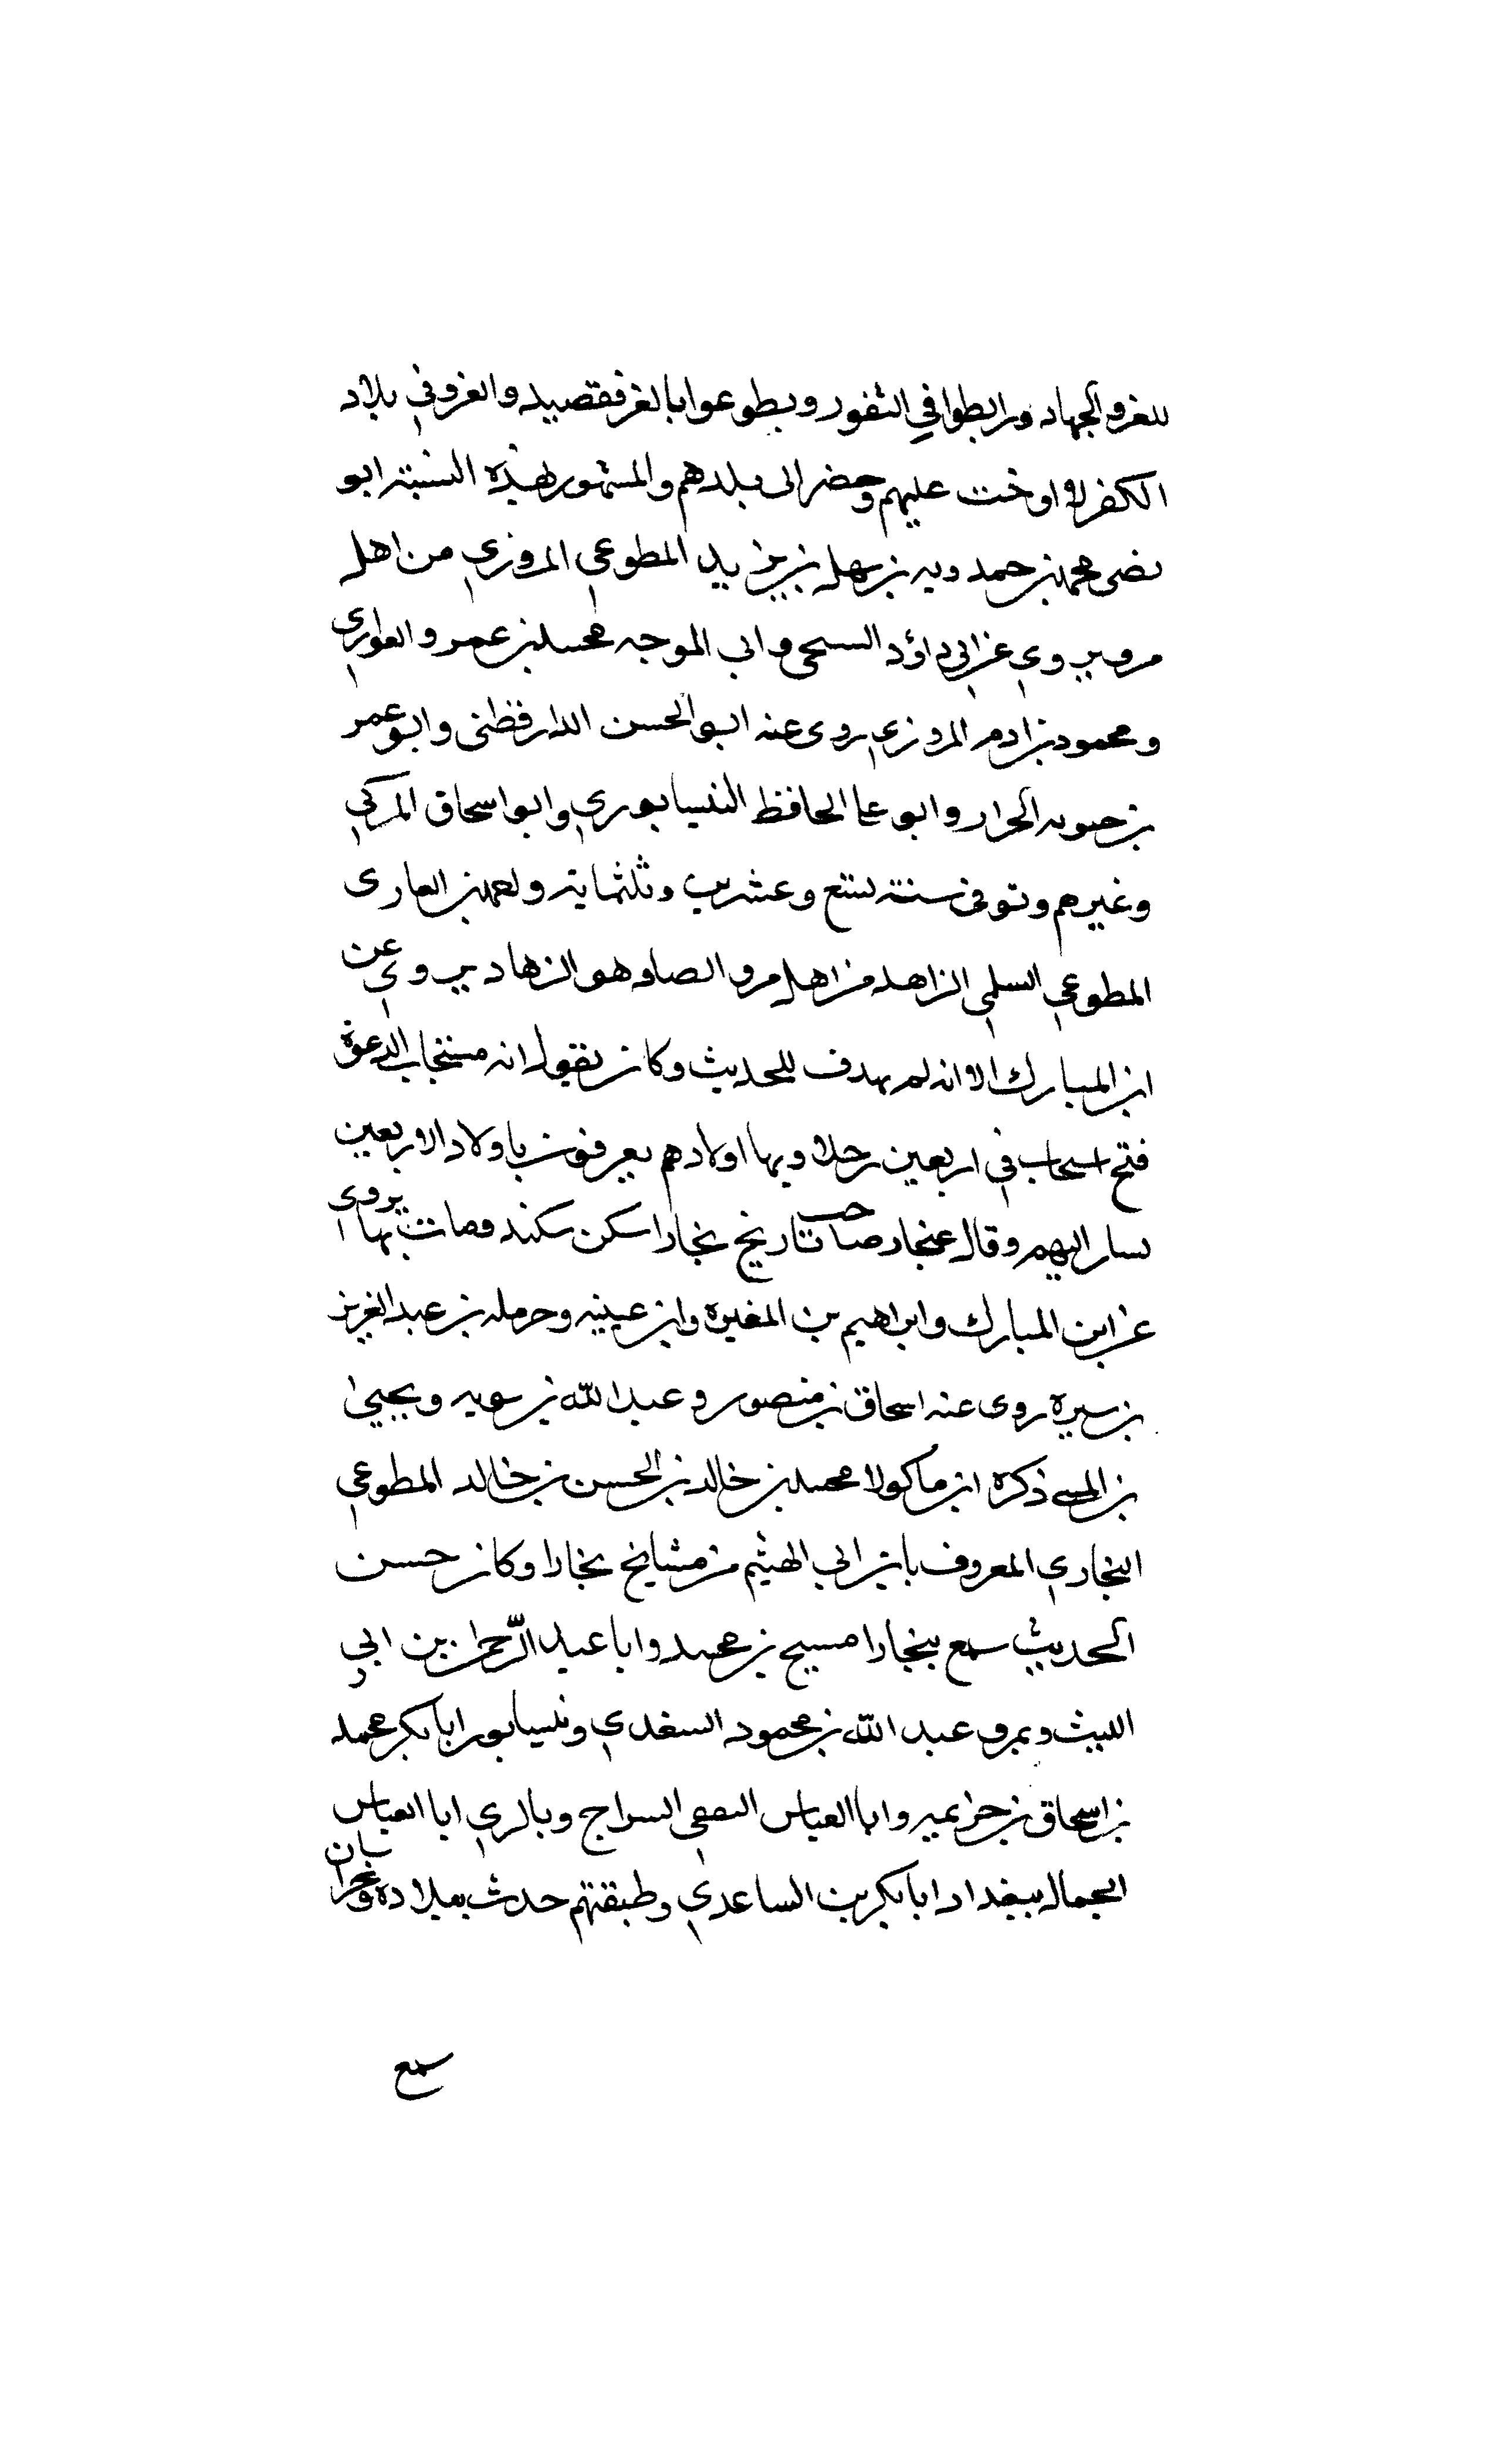 للغزو والجهاد ورابطوا في الثغور وبطوعوا بالغز فقصيد والغزو في بلاد
الكفر لا اوخت عليهم وحضر الى بلدهم والمشهور بهذه النسبة ابو
نصر محمد بن حمدويه بن سهل بن يزيد المطوعي المروزي من اهل
مرو يروي عن ابي داؤد السحى وابي الموجه محمد بن عمرو الفواري
ومحمود بن ادم المروزي روى عنه ابو الحسن الدارقطنى وابو عمر
بن حيويه الحرار وابو علي الحافظ النيسابوري وابو اسحاق المزكي
وغيرهم وتوفى سنة تسع وعشرين وثلثماية و العارى
المطوعي السلمي الزاهد من اهل مرو الصاوهو الزهاد يروي عن
ابن المبارك الا انه لم يهدف للحديث وكان يقول انه مستجاب الدعوة
فتح اسحاب في اربعين رجلا وبها اولادهم يعرفون باولاد الاربعين
يسار اليهم وقال عنجار صاحب تاريخ بخارا سكن سكند ومات بها يروي
عن ابن المبارك وابراهيم بن المغيرة وابن عيينه وحرمله بن عبد العزيز
بن سبره روى عنه اسحاق بن منصور وعبد الله بن سويه ويحيى
بن المسى ذكره ابن ماكولا محمد بن خالد بن الحسن بن خالد المطوعي
البخاري المعروف بابن ابي الهيثم من مشايخ بخارا وكان حسن
الحديث سمع ببخارا مسيح بن محمد وابا عبد الرحمن بن ابي
الليث وبمرو عبد الله بن محمود السغدي ونيسابور ابا بكر محمد
بن اسحاق بن خزيمه وابا العباس الثقفي السراج وبالري ابا العباس
الجمال ببغداد ابا بكر بن الساعدي وطبقتهم حدث ببلاده
سمع